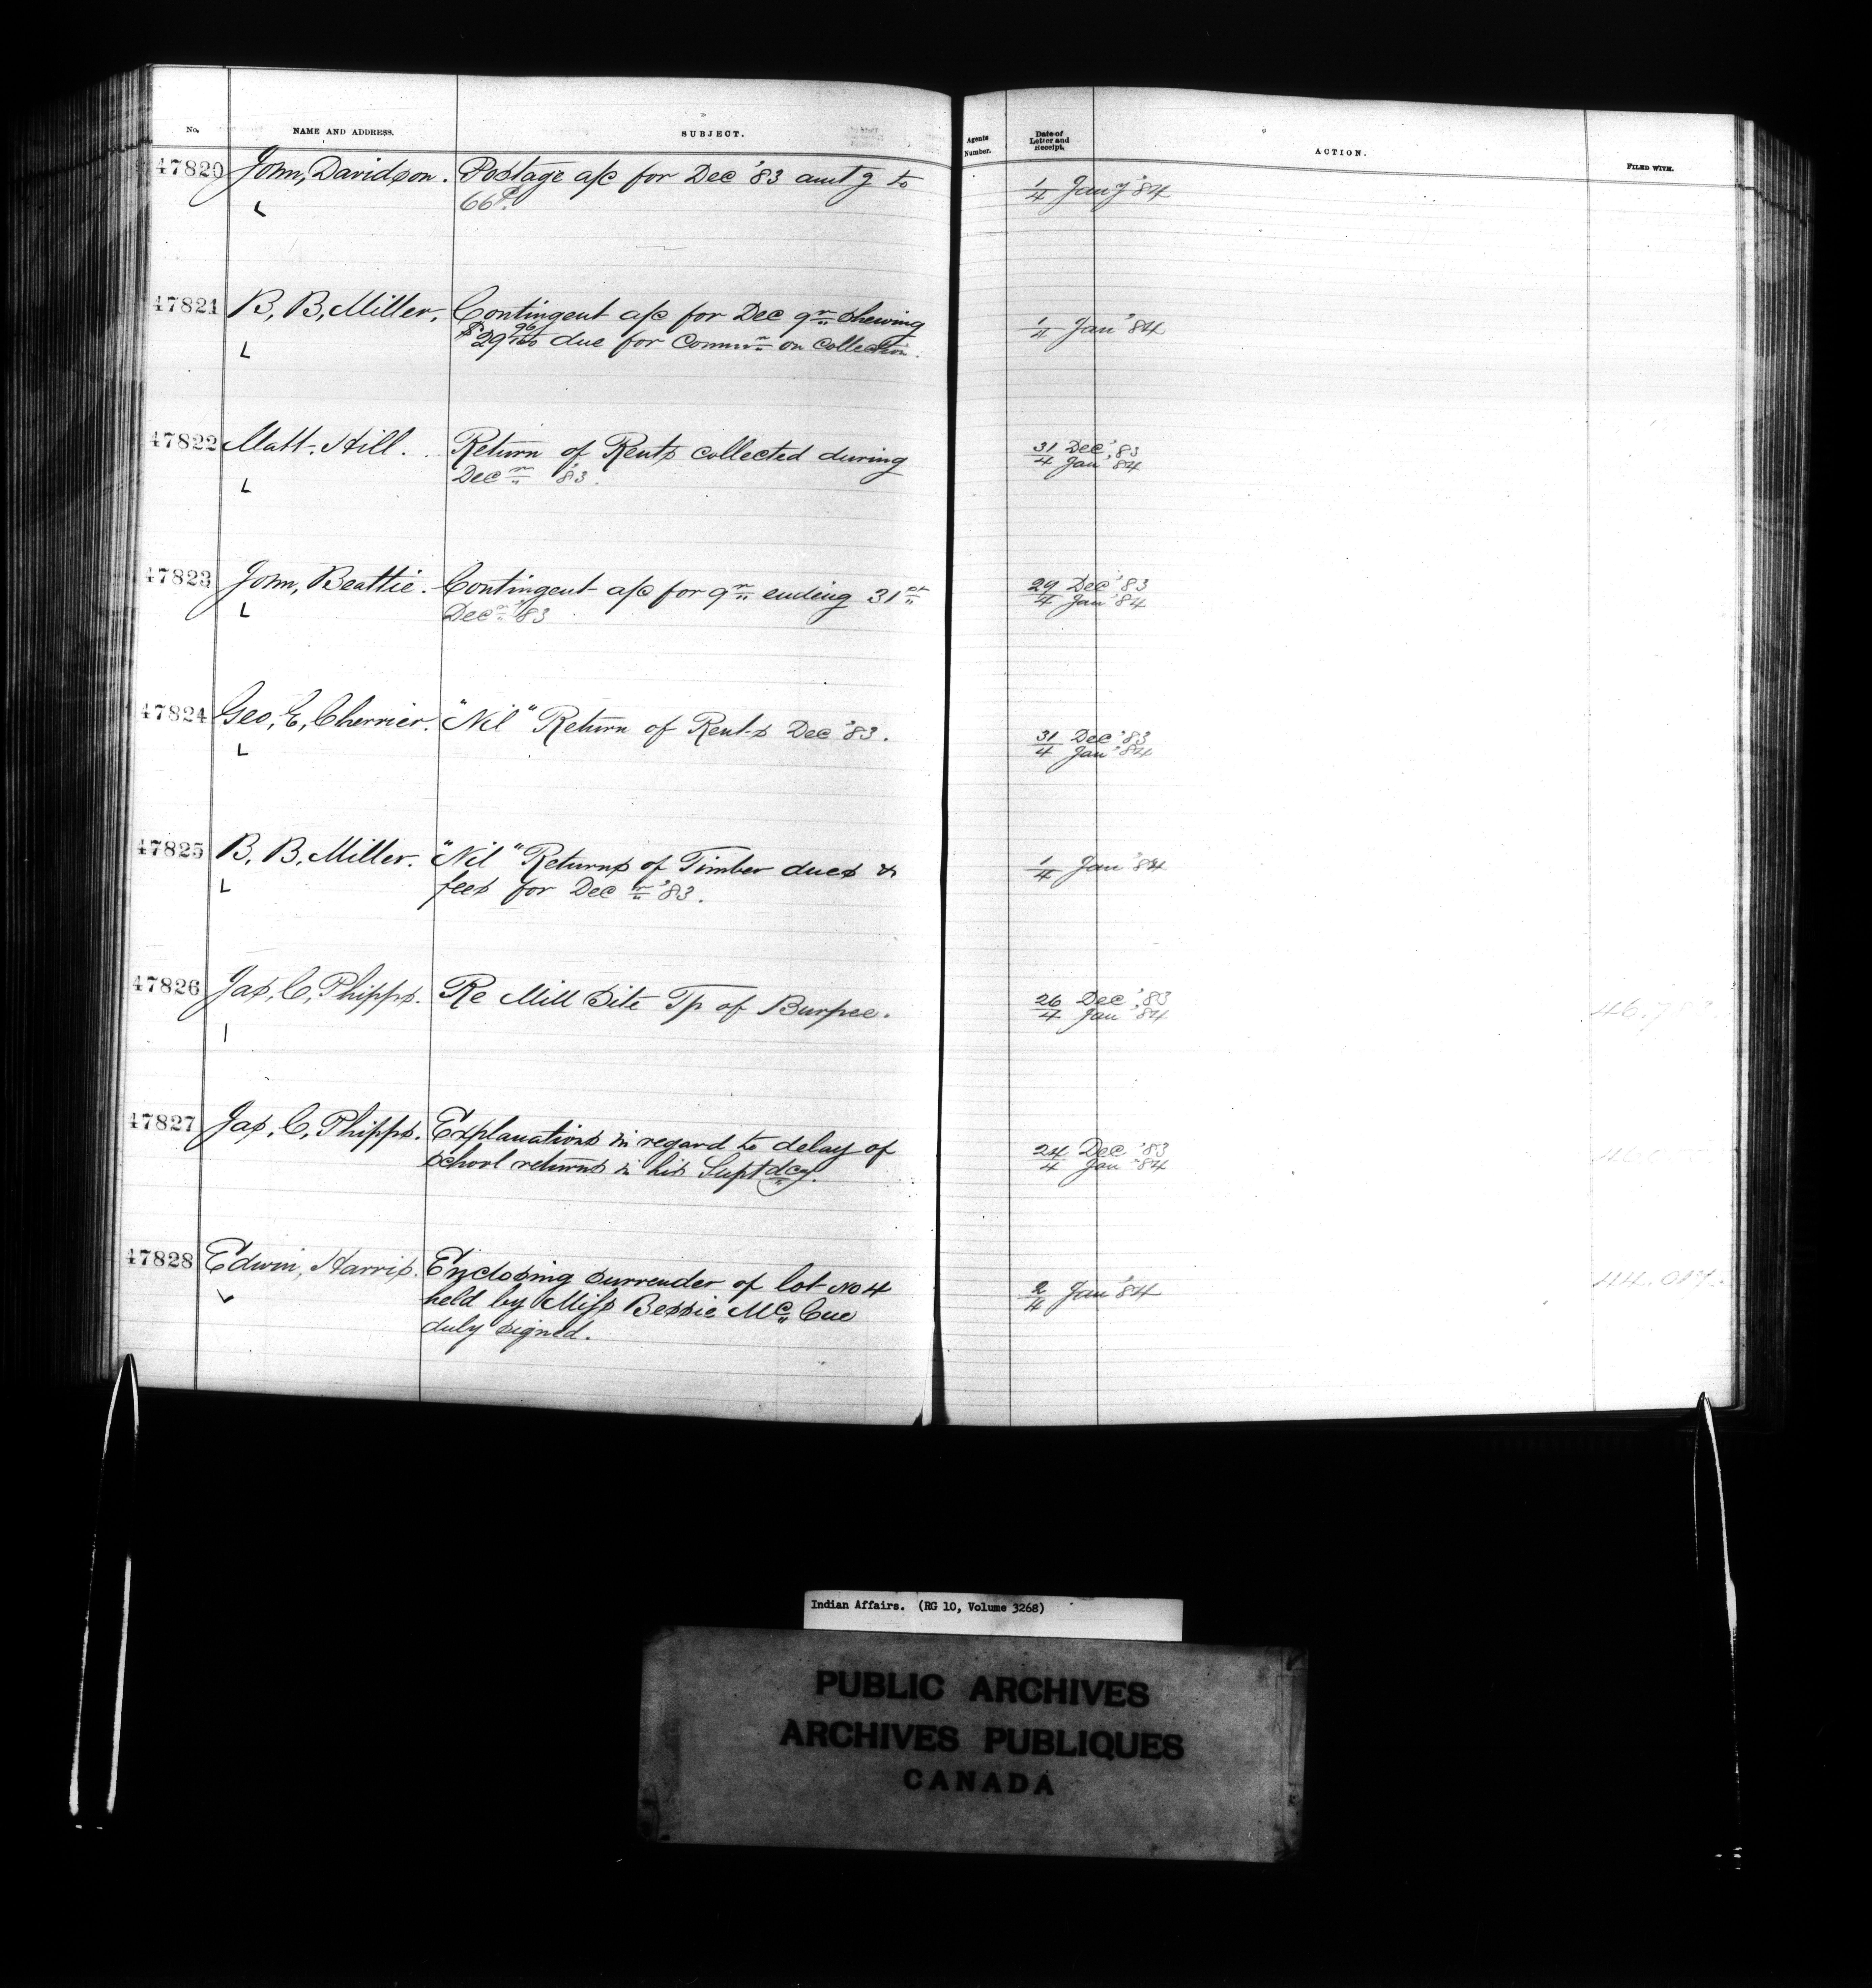 No. NAME AND ADDRESS. SUBJECT. Agents Number. Date of Letter and Receipt. ACTION. FILED WITH.
47820 John, Davidson. Postage a/c for Dec '83 amt g to 1/4 Jany '84
66c.
47821 B, B, Miller. Contingent a/c for Dec qr shewing 1/4 Jan' 84
$29 96/100 due for Commn on Collection.
47822 Matt. Hill. Return of Rents collected during 31 Dec '83
Decr '83. 4 Jan '84
47823 John, Beattie. Contingent a/c for qr ending 31st 29 Dec '83
Decr '83 4 Jan '84
47824 Geo, E, Cherrier. "Nil" Return of Rents Dec '83. 31 Dec '83
4 Jan '84
47825 B, B, Miller. "Nil" Returns of Timber dues & 1/4 Jan '84
fees for Decr '83.
47826 Jas, C, Phipps. Re Mill Site Tp of Burpee. 26 Dec '83
4 Jan '84
47827 Jas, C, Phipps. Explanations in regard to delay of 24 Dec '83
school returns in his Suptdcy. 4 Jan '84
47828 Edwin, Harris. Enclosing surrender of lot No 4 2/4 Jan '84
held by Miss Bessie McCue
duly signed.
Indian Affairs. (RG 10, Volume 3268)
PUBLIC ARCHIVES
ARCHIVES PUBLIQUES
CANADA